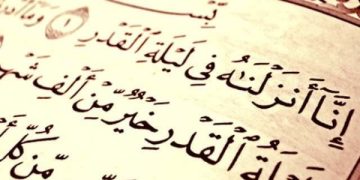 إِنَّآ أَنزَلْنَـٰهُ فِى لَيْلَةِ ٱلْقَدْرِ ١
لَيْلَةُ ٱلْقَدْرِ خَيْرٌ مِّنْ أَلْفِ
مِّن كُلِّ